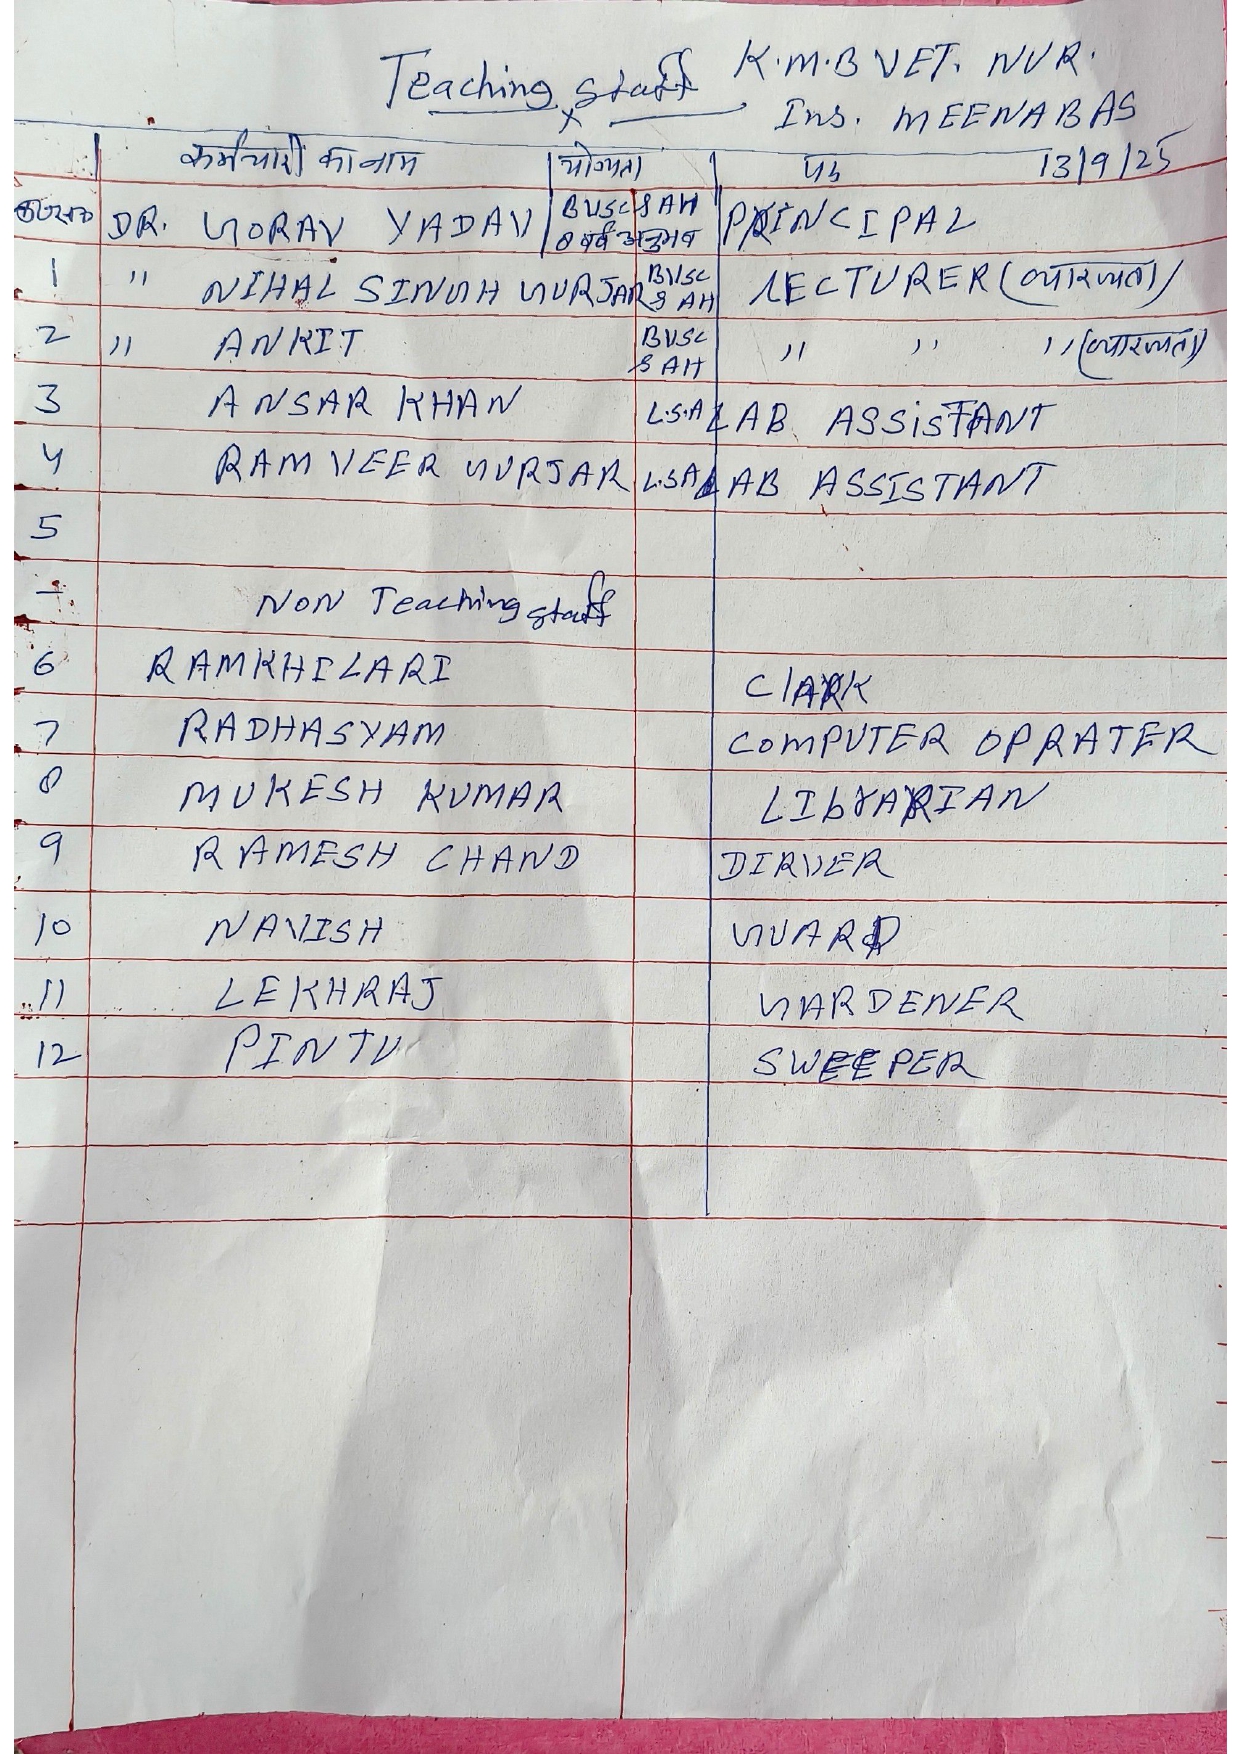 Teaching staff K.M.B VET. NUR.
Ins. MEENABAS
कर्मचारी का नाम योग्यता पद 13/9/25
DR. GORAV YADAV BVSC & AH 8 वर्ष अनुभव PRINCIPAL
1 " NIHAL SINGH GURJAR BVSC & AH LECTURER (व्याख्याता)
2 " ANKIT BVSC & AH " " " (व्याख्याता)
3 ANSAR KHAN L.S.A LAB ASSISTANT
4 RAMVEER GURJAR L.S.A LAB ASSISTANT
5
NON Teaching staff
6 RAMKHILARI ClARK
7 RADHASYAM COMPUTER OPRATER
8 MUKESH KUMAR LIbrARIAN
9 RAMESH CHAND DIRVER
10 NAVISH GUARD
11 LEKHRAJ GARDENER
12 PINTU SWEEPER